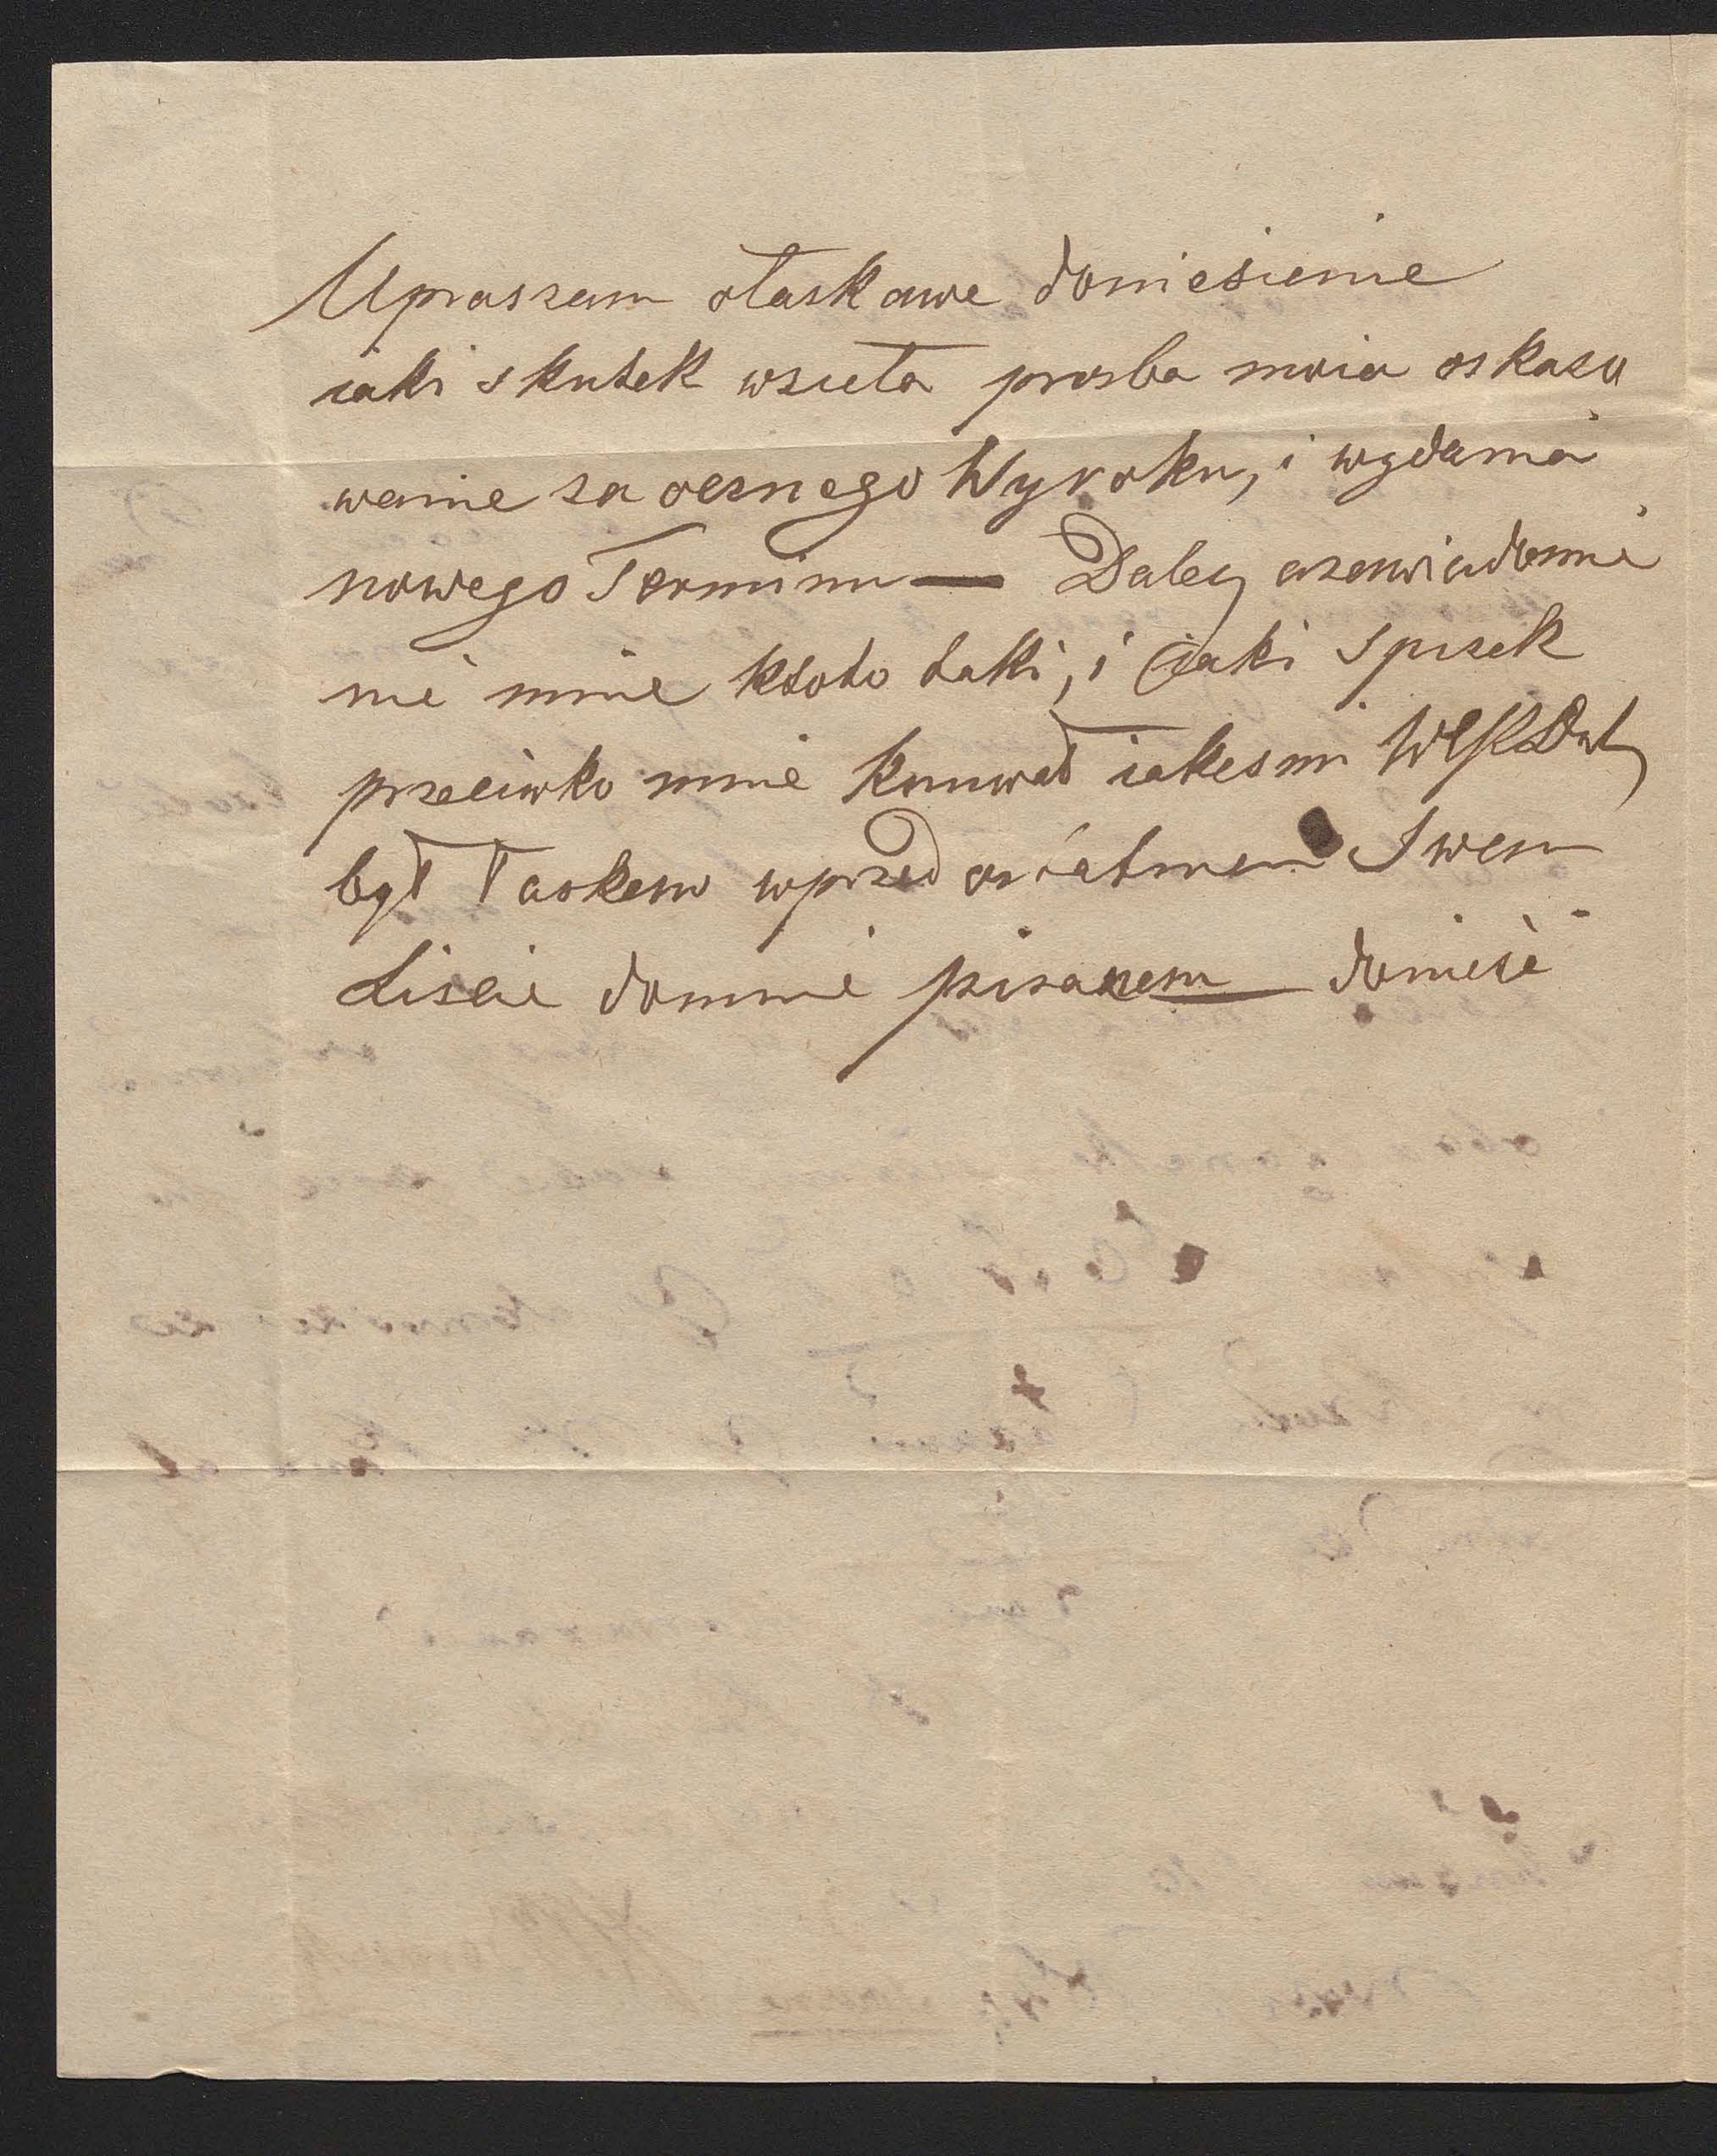 Upraszam ołaskawe doniesienie
iaki skutek wzieła prosba moia oskaso
wanie zaocznego Wyroku, i wydania
nowego Terminu — Daley azawiadomie
nie mnie ktoto taki, i iaki spisek
przeciwko mnie knuwał iakesmi
był łaskaw wprzed ostatnem Swem
Liscie domnie pisanem — donieść